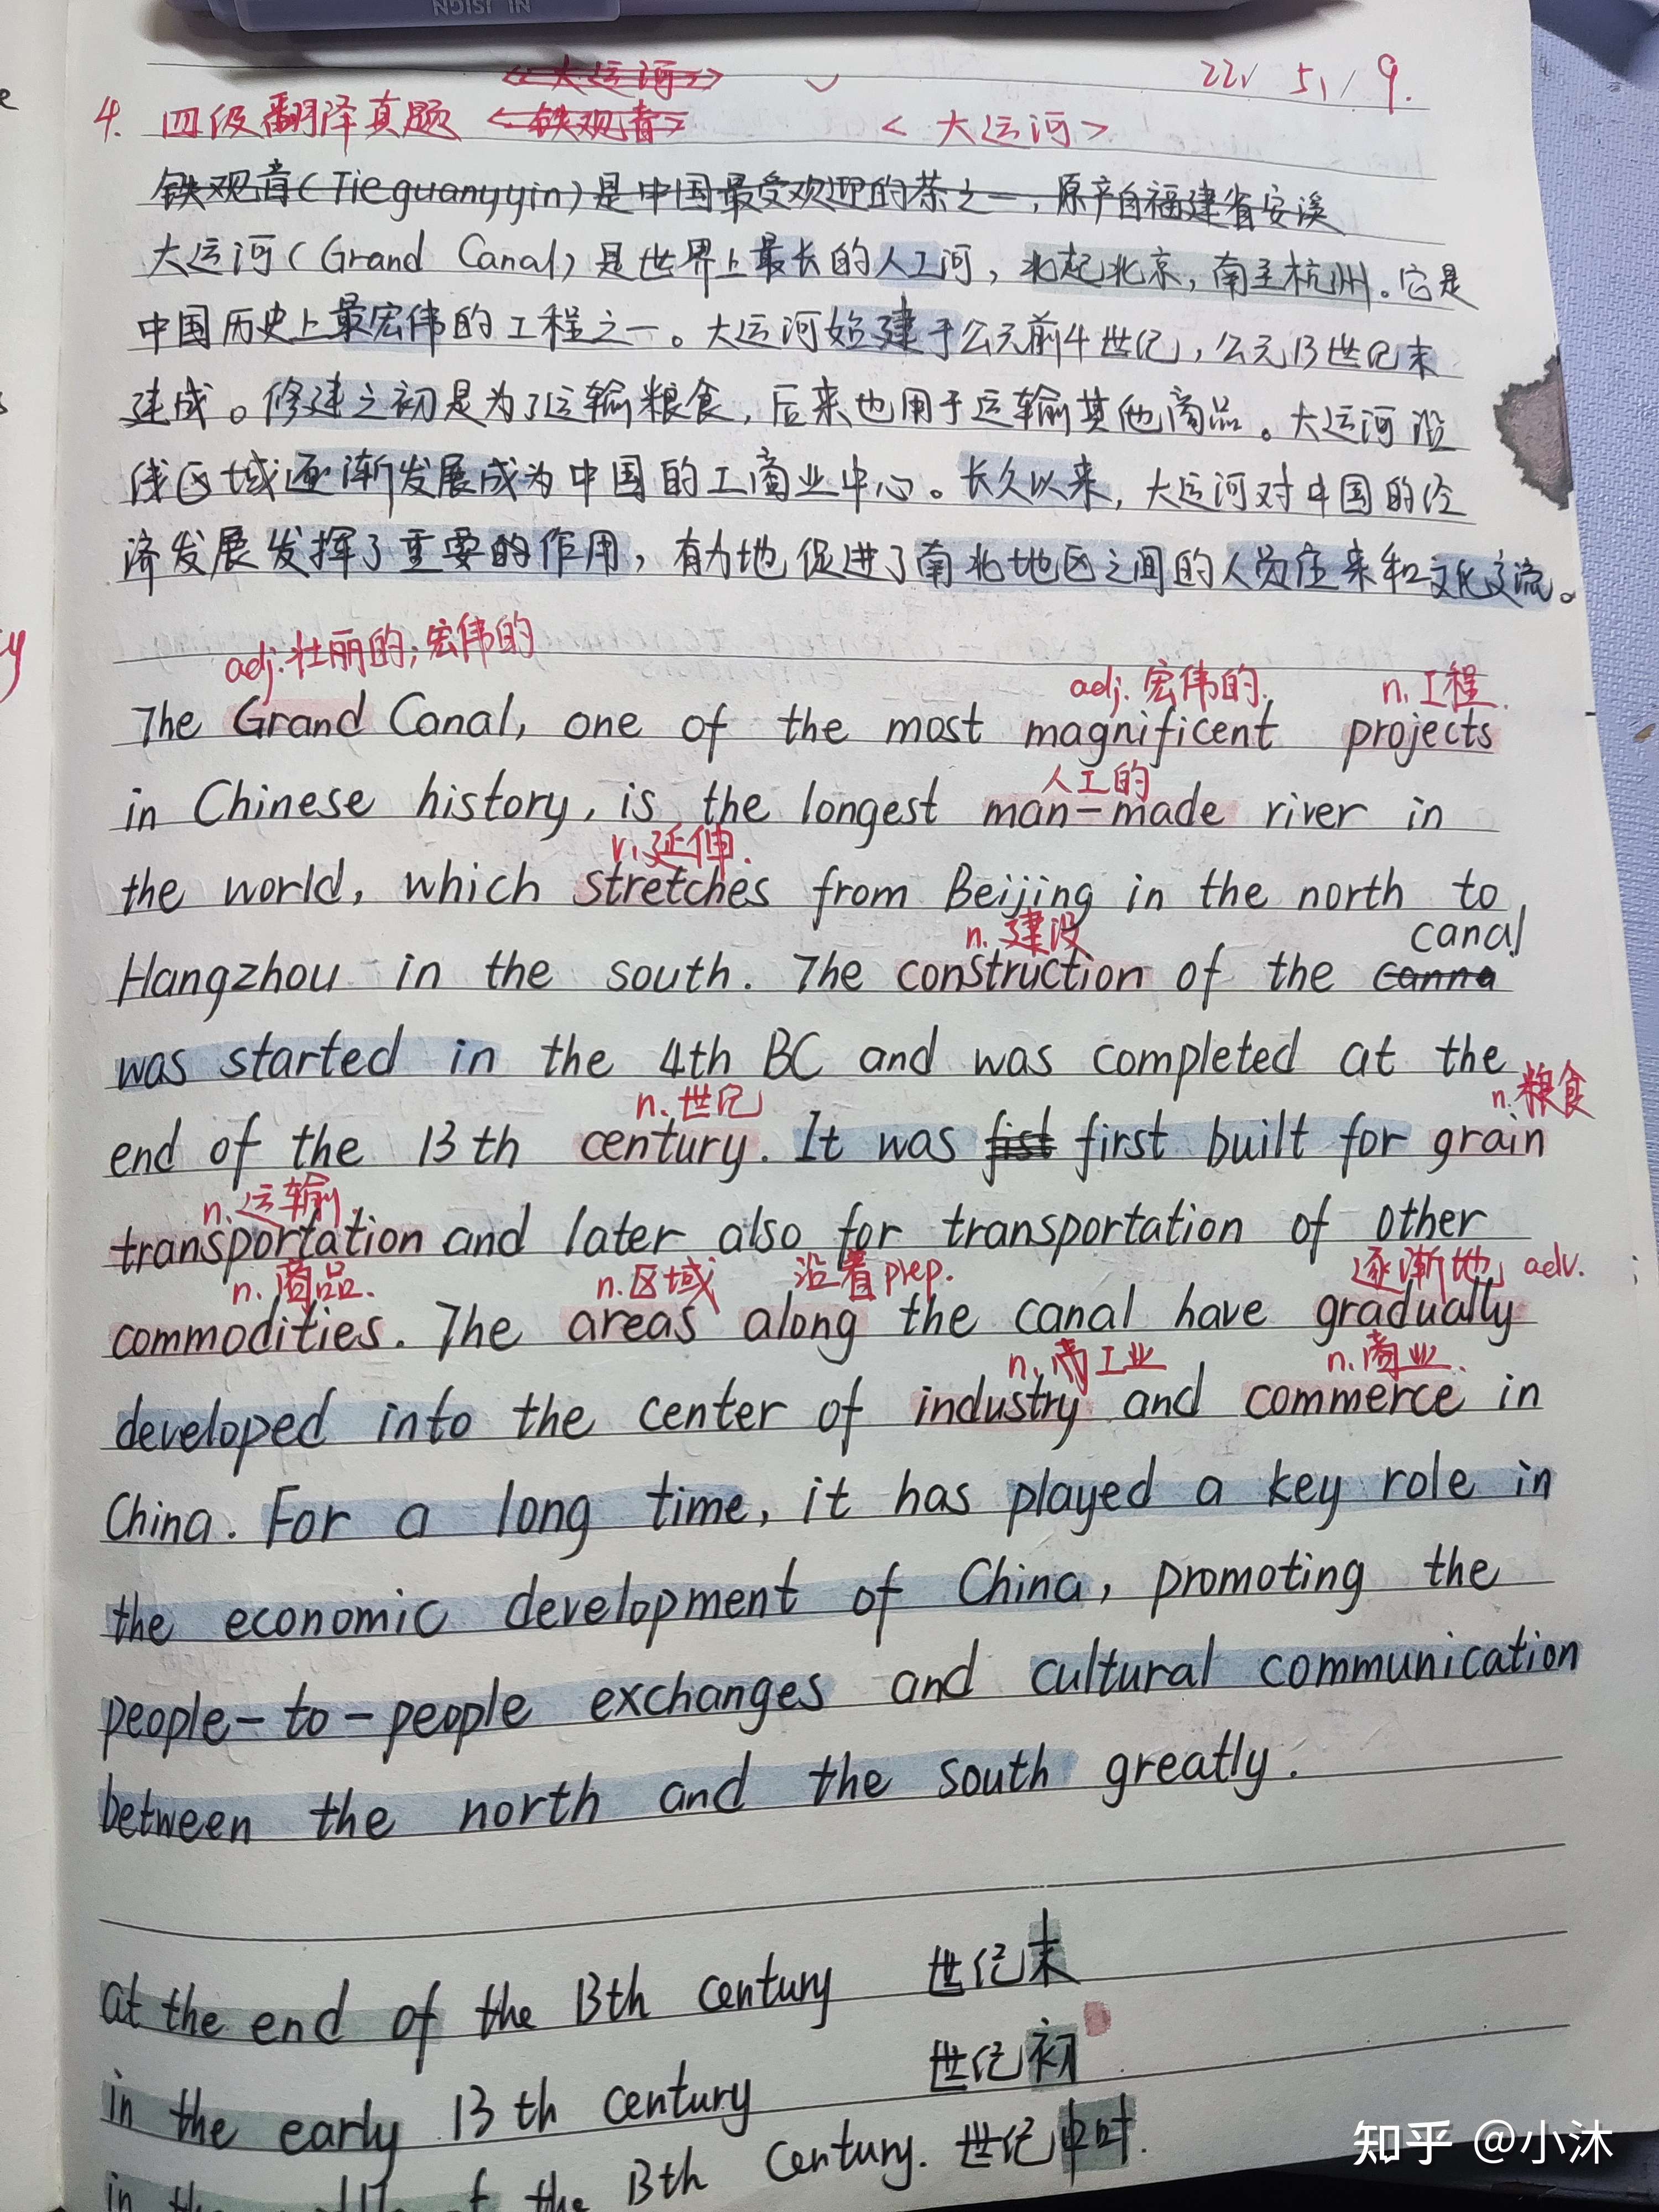 《大运河》
22、5、9.
4. 四级翻译真题 《铁观音》 <大运河>
铁观音(Tieguanyyin)是中国最受欢迎的茶之一,原产自福建省安溪
大运河(Grand Canal)是世界上最长的人工河,北起北京,南至杭州。它是
中国历史上最宏伟的工程之一。大运河始建于公元前4世纪,公元13世纪末
建成。修建之初是为了运输粮食,后来也用于运输其他商品。大运河沿
线区域逐渐发展成为中国的工商业中心。长久以来,大运河对中国的经
济发展发挥了重要的作用,有力地促进了南北地区之间的人员往来和文化交流。
adj.壮丽的;宏伟的
adj. 宏伟的. n.工程.
The Grand Canal, one of the most magnificent projects
人工的
in Chinese history, is the longest man-made river in
v.延伸.
the world, which stretches from Beijing in the north to
n.建设 canal
Hangzhou in the south. The construction of the canna
was started in the 4th BC and was completed at the
n.世纪 n.粮食
end of the 13th century. It was fist first built for grain
n.运输.
transportation and later also for transportation of other
n.商品. n.区域 沿着prep. 逐渐地 adv.
commodities. The areas along the canal have gradually
n.商工业 n.商业.
developed into the center of industry and commerce in
China. For a long time, it has played a key role in
the economic development of China, promoting the
people-to-people exchanges and cultural communication
between the north and the south greatly.
at the end of the 13th century 世纪末
in the early 13th century 世纪初
in the of the 13th century. 世纪中叶.
知乎 @小沐